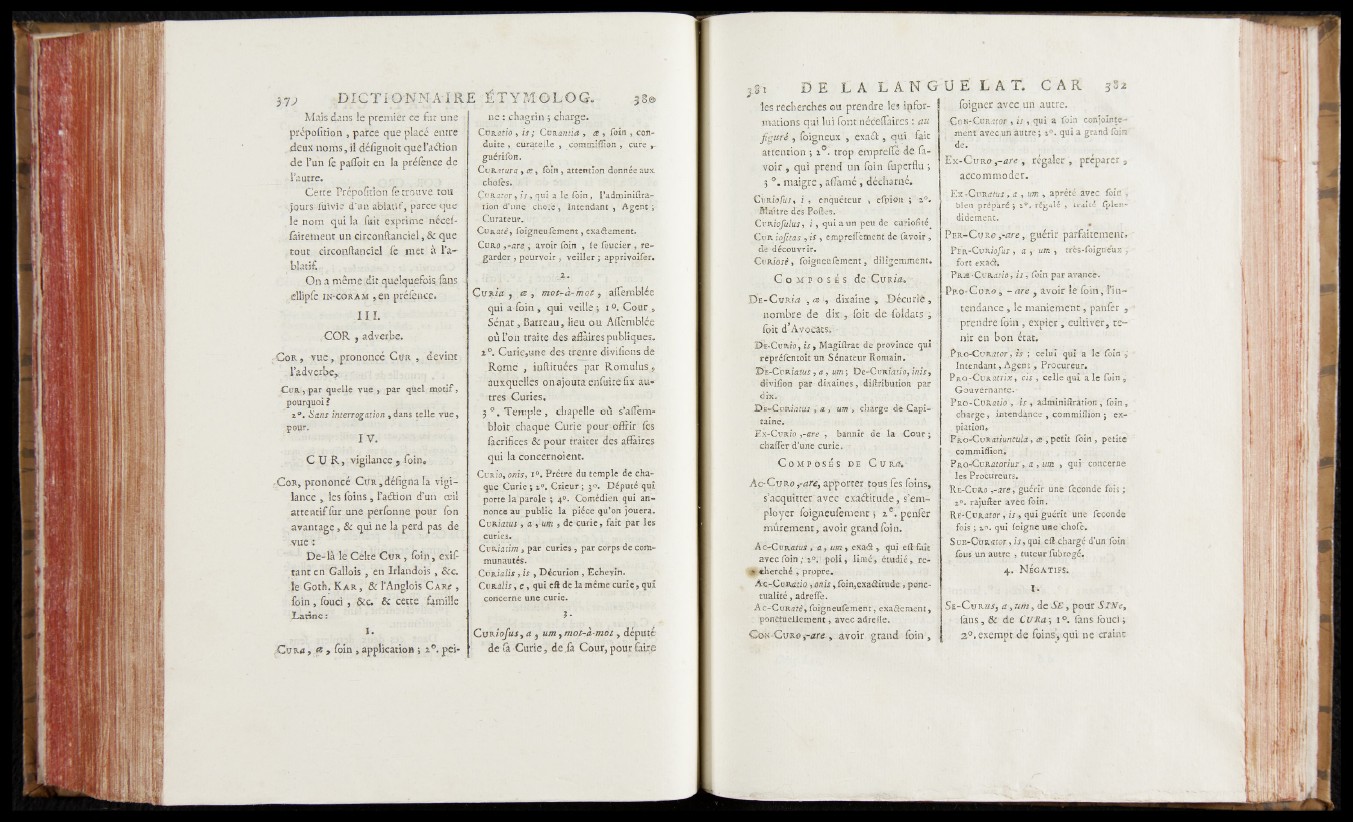 379 DICTIONNAIRE ÉTYMOLOG. 380
Mais dans le premier ce fut une
prépoſition , parce que placé entre
deux noms, il déſignoit que l'action
de l'un ſe paſſoit en la préſence de
l'autre.
Cette Prépoſition ſe trouve tou
jours ſuivie d'un ablatif, parce que
le nom qui la ſuit exprime néceſ-
ſairement un circonſtanciel, & que
tout circonſtanciel ſe met à l'a-
blatif.
On a même dit quelquefois ſans
ellipſe IN-CORAM , en préſence.
III.
COR , adverbe.
COR , vue, prononcé CUR , devint
l'adverbe,
CUR, par quelle vue , par quel motif,
pourquoi ?
2°. Sans interrogation, dans telle vue,
pour.
IV.
CUR, vigilance , ſoin.
COR, prononcé CUR, déſigna la vigi-
lance , les ſoins , l'action d'un œil
attentif ſur une perſonne pour ſon
avantage , & qui ne la perd pas de
vue :
De-là le Celte CUR , ſoin, exiſ-
tant en Gallois , en Irlandois , &c.
le Goth. KAR , & l'Anglois CARe ,
ſoin , ſouci , &c. & cette famille
Latine :
1.
CURa, æ , ſoin , application ; 2°. pei-
ne : chagrin ; charge.
CURatio, is ; CURantia , æ , ſoin , con-
duite , curatelle , commiſſion , cure ,
guériſon.
CURatura, æ, ſoin, attention donnée aux
choſes.
CURator, is, qui a le ſoin, l'adminiſtra-
tion d'une choſe, Intendant , Agent ;
Curateur.
CURaté, ſoigneuſement , exactement.
CURO ,-are , avoir ſoin , ſe ſoucier , re-
garder , pourvoir , veiller ; apprivoiſer.
2.
CURia , æ , mot-à-mot , aſſemblée
qui a ſoin , qui veille ; 1°. Cour ,
Sénat, Barreau, lieu ou Aſſemblée
où l'on traite des affaires publiques.
2°. Curie, une des trente diviſions de
Rome , inſtituées par Romulus ,
auxquelles on ajouta enſuite ſix au-
tres Curies.
3°. Temple , chapelle où s'aſſem-
bloit chaque Curie pour offrir ſes
ſacrifices & pour traiter des affaires
qui la concernoient.
CURio, onis, 1°. Prêtre du temple de cha-
que Curie ; 2°. Crieur ; 3°. Député qui
porte la parole ; 4°. Comédien qui an-
nonce au public la piéce qu'on jouera.
CURiatus , a , um , de curie , fait par les
curies.
CURiatim , par curies , par corps de com-
munautés.
CURialis , is , Décurion , Echevin.
CURalis, e , qui eſt de la même curie, qui
concerne une curie.
3.
CURioſus, a , um, mot-à-mot , député
de ſa Curie, de ſa Cour, pour faire
381 DE LA LANGUE LAT. CAR 382
les recherches ou prendre les infor-
mations qui lui ſont néceſſaires : au
figuré , ſoigneux , exact , qui fait
attention ; 2°. trop empreſſé de ſa-
voir , qui prend un ſoin ſuperflu ;
3°. maigre , affamé , décharné.
CURioſus, i , enquêteur , eſpion ; 2°.
Maître des Poſtes.
CURioſulus, i , qui a un peu de curioſité
CURioſitas , is , empreſſement de ſavoir ,
de découvrir.
CURiosé, ſoigneuſement, diligemment.
COMPOSÉS de CURia.
DE-CURia , æ , dixaine , Décurie ,
nombre de dix , ſoit de ſoldats ,
ſoit d'Avocats.
DE-CURio, is, Magiſtrat de province qui
repréſentoit un Sénateur Romain.
DE-CURiatus , a , um ; DE-CURiatio, inis,
diviſion par dixaines, diſtribution par
dix.
DE-CURiatus , a , um , charge de Capi-
taine.
EX-CURio ,-are , bannir de la Cour ;
chaſſer d'une curie.
COMPOSÉS DE CURa.
AC-CURO ,-are, apporter tous ſes ſoins,
s'acquitter avec exactitude, s'em-
ployer ſoigneuſement ; 2°. penſer
mûrement, avoir grand ſoin.
AC-CURatus , a , um , exact , qui eſt fait
avec ſoin ; 2°. poli , limé, étudié , re-
cherché , propre.
AC-CURatio , onis , ſoin, exactitude , ponc-
tualité , adreſſe.
AC-CURaté, ſoigneuſement, exactement,
ponctuellement , avec adreſſe.
CON-CURO ,-are , avoir grand ſoin ,
ſoigner avec un autre.
CON-CURator , is , qui a ſoin conjointe-
ment avec un autre ; 2°. qui a grand ſoin
de.
EX-CURO ,-are , régaler , préparer ,
accommoder.
EX-CURatus , a , um , apreté avec ſoin ,
bien préparé ; 2°. régalé , traité ſplen-
didement.
PER-CURO ,-are , guérir parfaitement.
PER-CURioſus , a , um , très-ſoigneux ,
fort exact.
PRÆ-CURatio, is, ſoin par avance.
PRO-CURO , -are , avoir le ſoin , l'in-
tendance , le maniement , panſer ,
prendre ſoin , expier , cultiver , te-
nir en bon état.
PRO-CURator, is : celui qui a le ſoin ,
Intendant , Agent , Procureur.
PRO-CURatrix , cis , celle qui a le ſoin ,
Gouvernante.
PRO-CURatio , is , adminiſtration , ſoin ,
charge , intendance , commiſſion ; ex-
piation.
PRO-CURatiuncula , æ , petit ſoin , petite
commiſſion.
PRO-CURatorius , a , um , qui concerne
les Procureurs.
RE-CURO ,-are , guérir une ſeconde fois ;
2°. rajuſter avec ſoin.
RE-CURator , is , qui guérit une ſeconde
fois ; 2°. qui ſoigne une choſe.
SUB-CURator , is, qui eſt chargé d'un ſoin
ſous un autre , tuteur ſubrogé.
4. NÉGATIFS.
1.
SE-CURus, a , um , de SE , pour SINe,
ſans, & de CURa ; 1°. ſans ſouci ;
2°. exempt de ſoins, qui ne craint